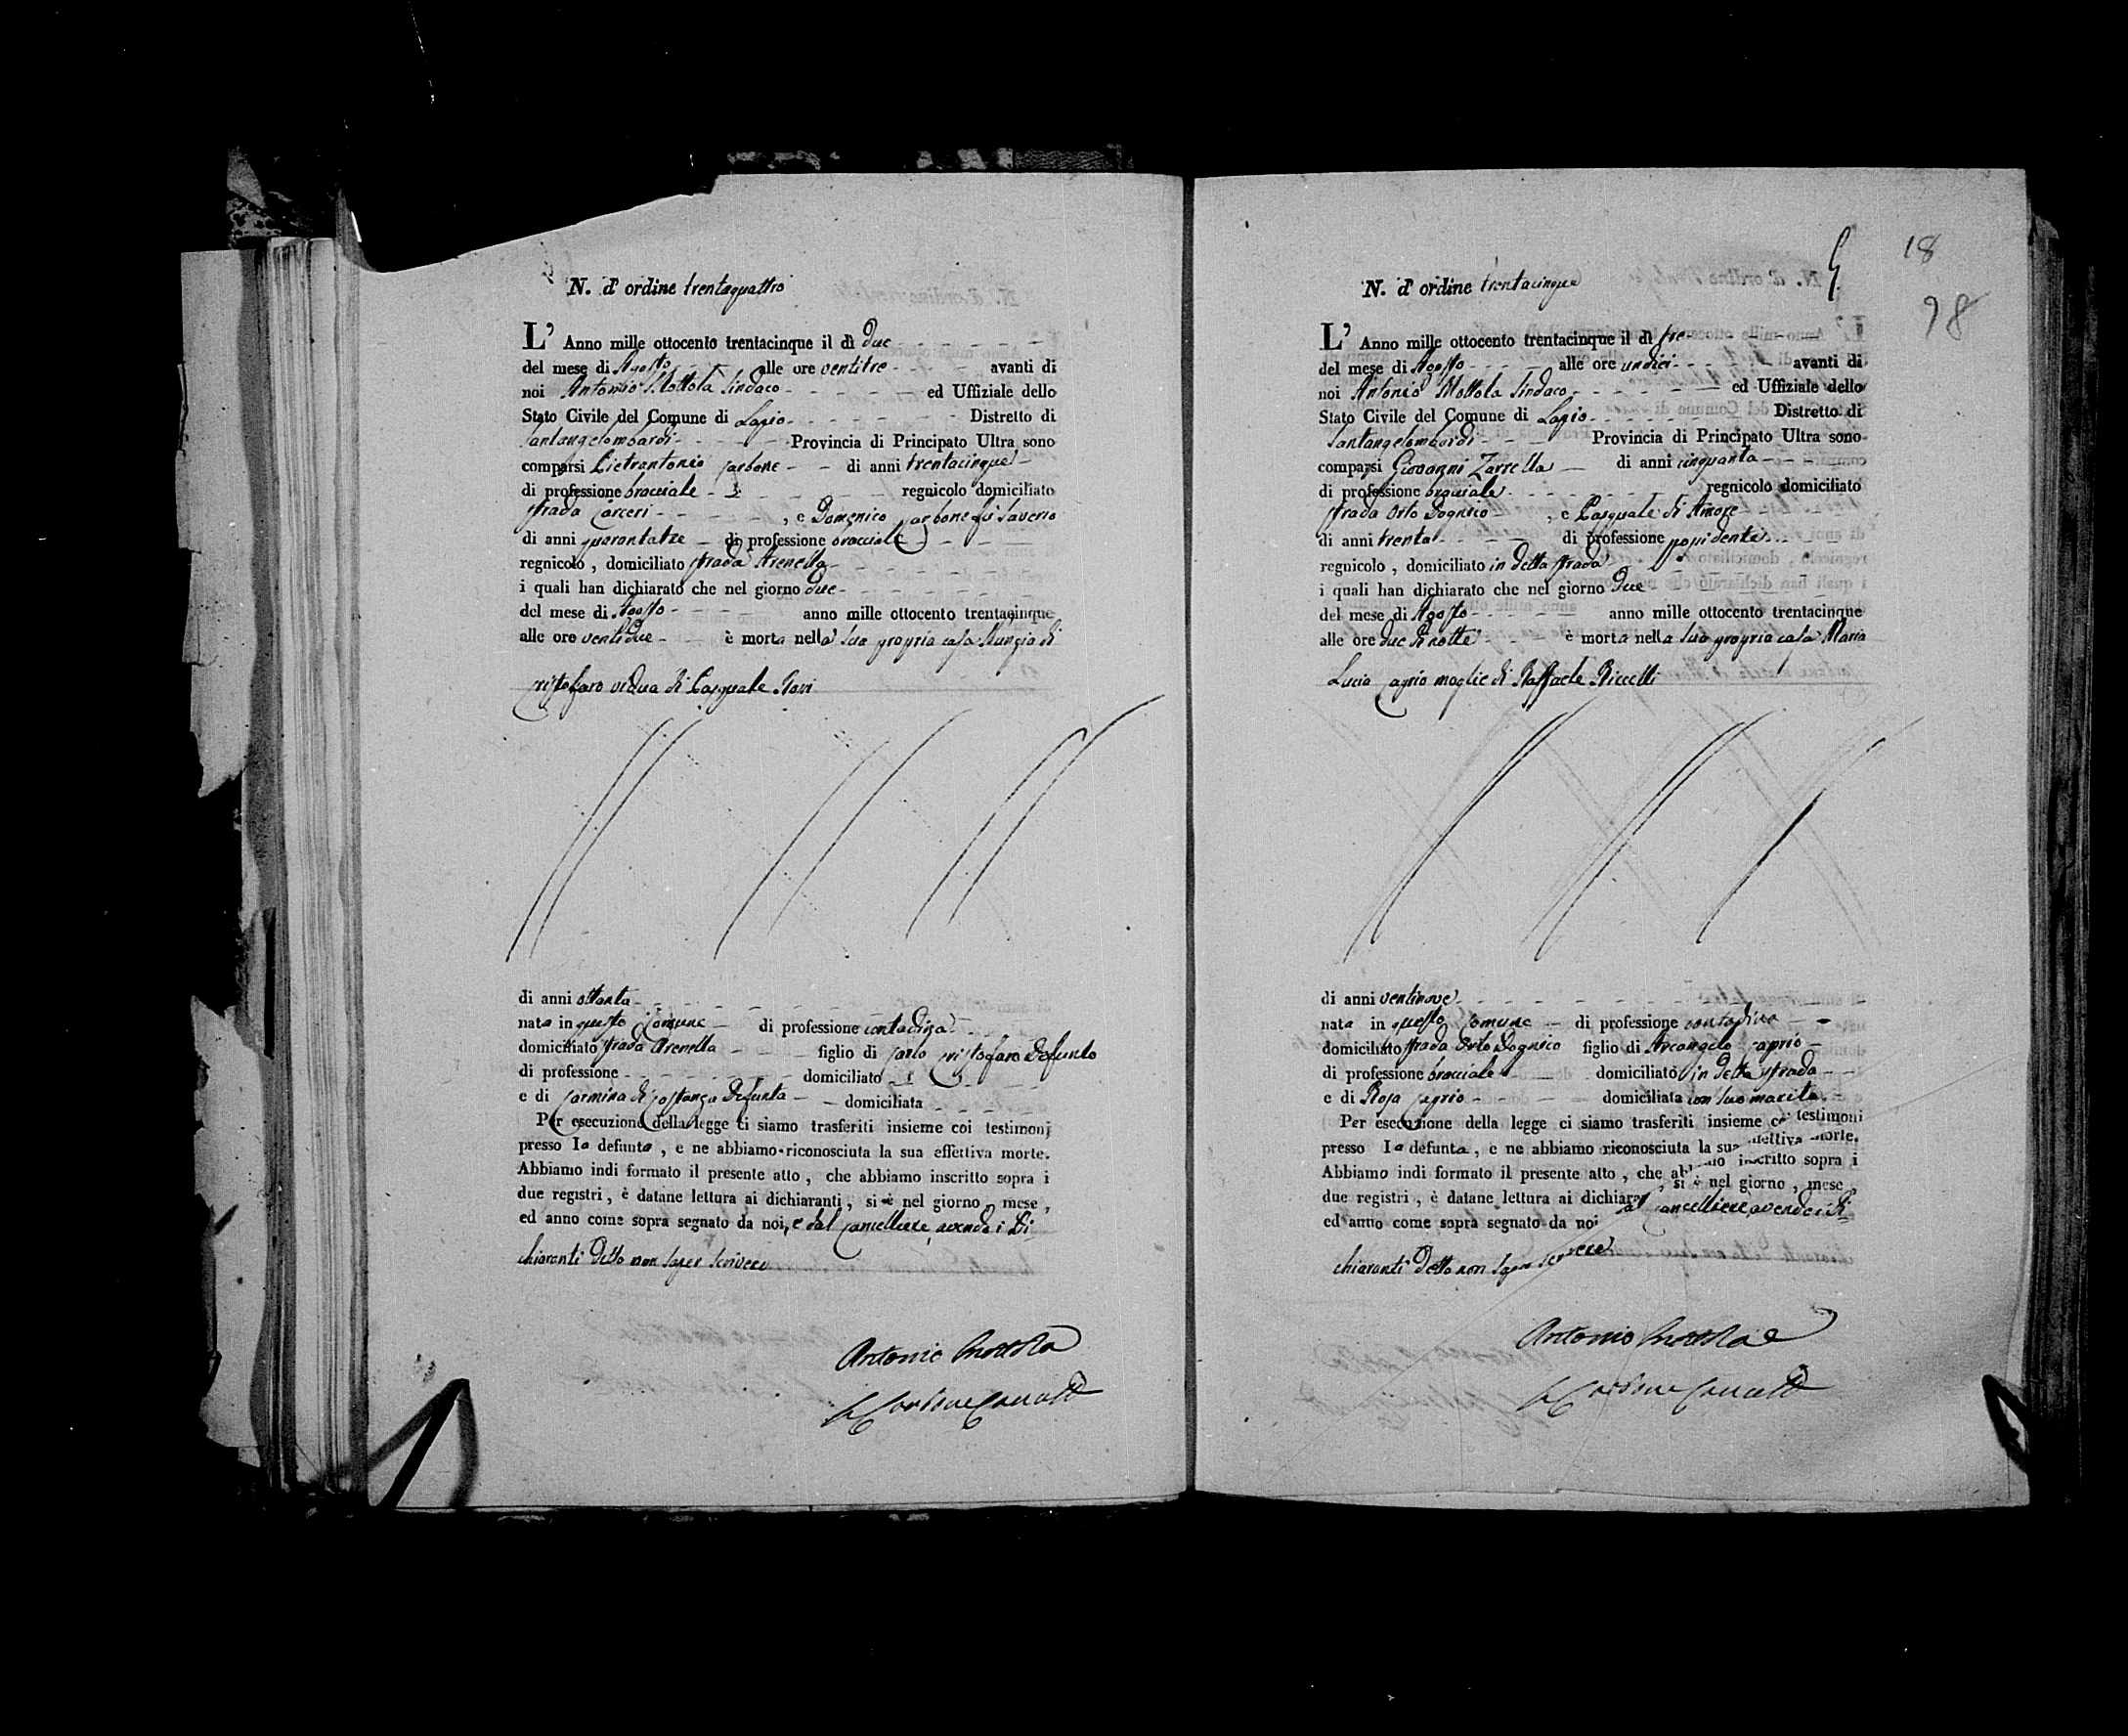 N. d' ordine trentaquattro
L' Anno mille ottocento trentacinque il dì due
del mese di Agosto alle ore ventitre avanti di
noi Antonio Mottola Sindaco ed Uffiziale dello
Stato Civile del Comune di Lapio Distretto di
Santangelombardi Provincia di Principato Ultra sono
comparsi Pietrantonio Carbone di anni trentacinque
di professione bracciale regnicolo domiciliato
strada Carceri , e Domenico Carbone fu Saverio
di anni quarantatre di professione bracciale
regnicolo , domiciliato strada Arenella
i quali han dichiarato che nel giorno due
del mese di Agosto anno mille ottocento trentacinque
alle ore ventidue è morta nella sua propria casa Nunzia di
Cristofaro vidua di Pasquale
di anni ottanta
nata in questo Comune di professione contadina
domiciliato strada Arenella figlio di Carlo Cristofaro Defunto
di professione domiciliato
e di Carmina di Costanza Defunta domiciliata
Per esecuzione della legge ci siamo trasferiti insieme coi testimonj
presso la defunta , e ne abbiamo riconosciuta la sua effettiva morte.
Abbiamo indi formato il presente atto , che abbiamo inscritto sopra i
due registri , è datane lettura ai dichiaranti , si è nel giorno , mese ,
ed anno come sopra segnato da noi, e dal Cancelliere, avendo i Di
chiaranti detto non saper scrivere
Antonio Mottola
Carbone Cancell
18
98
N. d' ordine trentacinque
L' Anno mille ottocento trentacinque il dì tre
del mese di Agosto alle ore undici avanti di
noi Antonio Mottola Sindaco ed Uffiziale dello
Stato Civile del Comune di Lapio Distretto di
Santangelombardi Provincia di Principato Ultra sono
comparsi Giovanni Zarrella di anni cinquanta
di professione bracciale regnicolo domiciliato
strada Orto Dognico , e Pasquale di Amore
di anni trenta di professione possidente
regnicolo , domiciliato in detta strada
i quali han dichiarato che nel giorno due
del mese di Agosto anno mille ottocento trentacinque
alle ore due di notte è morta nella sua propria casa Maria
Lucia Caprio moglie di Raffaele Riccelli
di anni ventinove
nata in questo Comune di professione contadina
domiciliato strada Orto Dognico figlio di Arcangelo Caprio
di professione bracciale domiciliato in detta strada
e di Rosa Caprio domiciliata con suo marito
Per esecuzione della legge ci siamo trasferiti insieme co testimoni
presso la defunta , e ne abbiamo riconosciuta la sua effettiva morte.
Abbiamo indi formato il presente atto , che abbiamo inscritto sopra i
due registri , è datane lettura ai dichiaran , si è nel giorno , mese ,
ed anno come sopra segnato da noi al Cancelliere avendo i Di=
chiaranti detto non saper scrivere
Antonio Mottola
Carbone Cancell